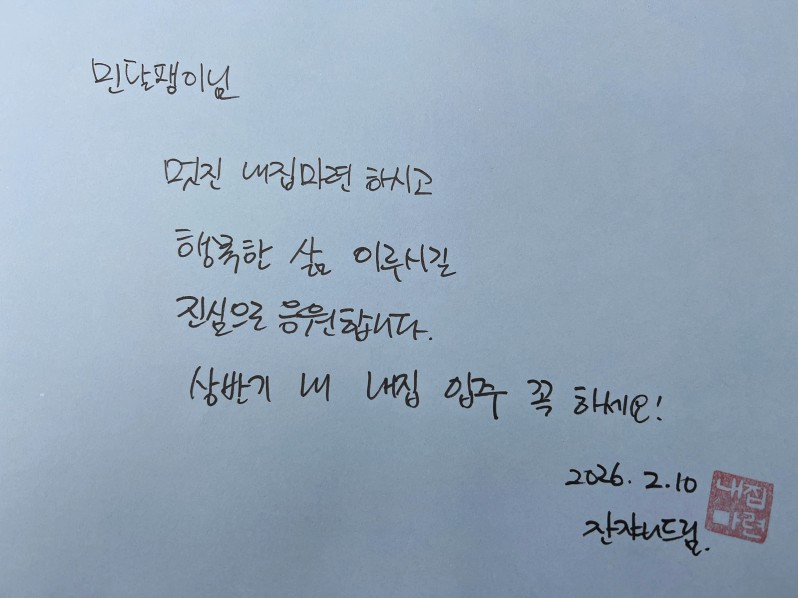 민달팽이님
멋진 내집마련 하시고
행복한 삶 이루시길
진심으로 응원합니다.
상반기 내 내집 입주 꼭 하세요!
2026. 2. 10
잔쟈니드림.
내집
마련